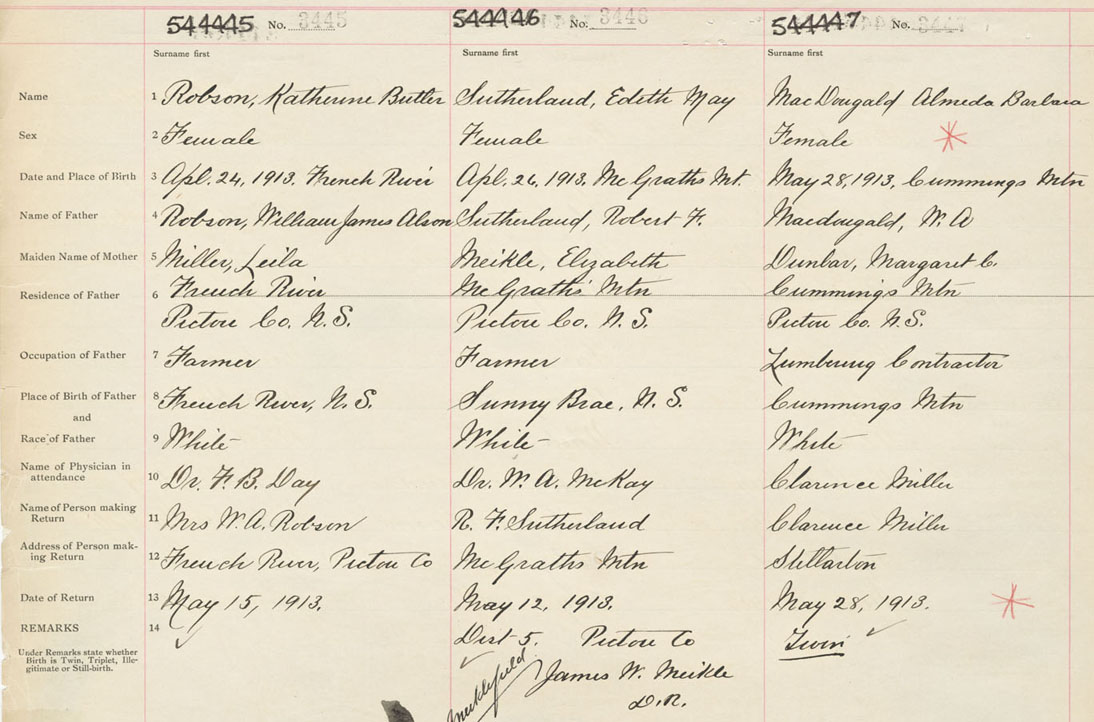 544445 No. 3445 544446 No. 3446 544447 No. 3447
Surname first Surname first Surname first
Name 1 Robson, Katherine Butler Sutherland, Edeth May MacDougald Almeda Barbara
Sex 2 Female Female Female
Date and Place of Birth 3 Apl. 24, 1913. French River Apl. 26, 1913, McGraths Mt. May 28, 1913, Cummings Mtn
Name of Father 4 Robson, William James Alson Sutherland, Robert F. Macdougald, W. A
Maiden Name of Mother 5 Miller, Leila Meikle, Elizabeth Dunbar, Margaret C.
Residence of Father 6 French River McGraths Mtn Cummings Mtn
Pictou Co. N.S. Pictou Co. N.S. Pictou Co. N.S.
Occupation of Father 7 Farmer Farmer Lumbering Contractor
Place of Birth of Father 8 French River, N.S. Sunny Brae, N.S. Cummings Mtn
and
Race of Father 9 White White White
Name of Physician in
attendance 10 Dr. F. B. Day Dr. W. A. McKay Clarence Miller
Name of Person making
Return 11 Mrs W. A. Robson R. F. Sutherland Clarence Miller
Address of Person mak-
ing Return 12 French River, Pictou Co McGraths Mtn Stellarton
Date of Return 13 May 15, 1913. May 12, 1913. May 28, 1913.
REMARKS 14 Dist 5. Pictou Co Twin
Under Remarks state whether
Birth is Twin, Triplet, Ille-
gitimate or Still-birth.
Meiklefield James W. Meikle
D.R.